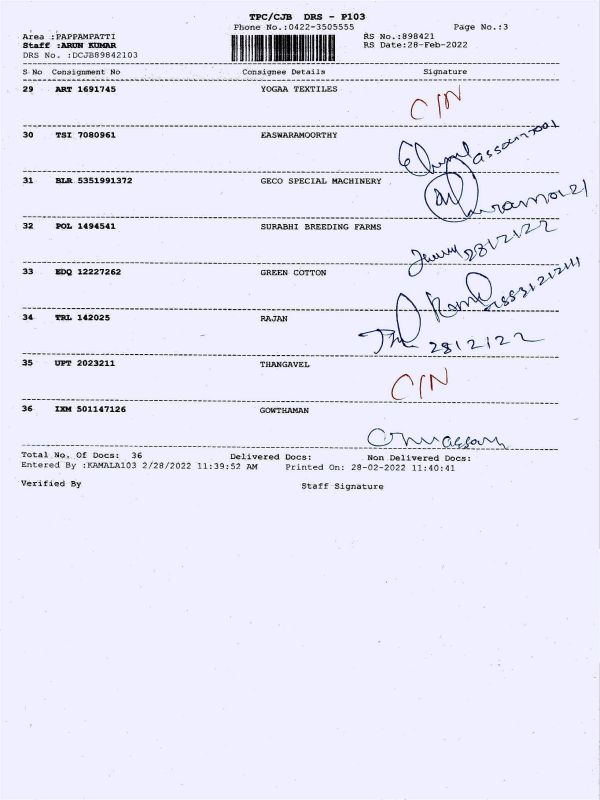 TPC/CJB DRS - P103
Phone No.:0422-3505555 Page No.:3
Area :PAPPAMPATTI RS No.:898421
Staff :ARUN KUMAR RS Date:28-Feb-2022
DRS No. :DCJB89842103
S No Consignment No Consignee Details Signature
29 ART 1691745 YOGAA TEXTILES C/N
30 TSI 7080961 EASWARAMOORTHY
31 BLR 5351991372 GECO SPECIAL MACHINERY
32 POL 1494541 SURABHI BREEDING FARMS
33 EDQ 12227262 GREEN COTTON
34 TRL 142025 RAJAN
35 UPT 2023211 THANGAVEL C/N
36 IXM 501147126 GOWTHAMAN
Total No. Of Docs: 36 Delivered Docs: Non Delivered Docs:
Entered By :KAMALA103 2/28/2022 11:39:52 AM Printed On: 28-02-2022 11:40:41
Verified By Staff Signature